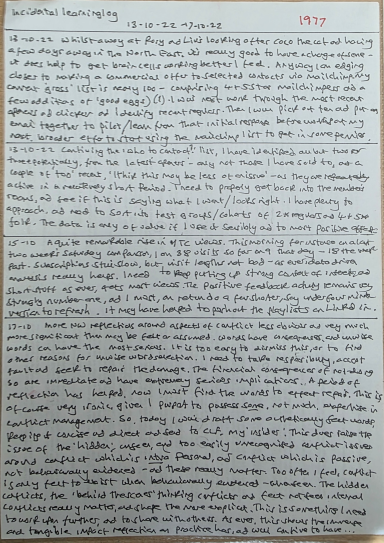 Incidental learning log
13-10-22 → 17-10-22
1977
13-10-22 Whilst away at Rory and Liv's looking after Coco the cat and having
a few days away in the North East. It's really good to have a change of scene -
it does help to get brain cells working better I feel. Anyway I am edging
closer to making a commercial offer to selected contacts via mailchimp. My
current 'gross' list is nearly 100 - comprising 4 + 5 star mailchimpers and a
few additions of 'good eggs'
work through the most recent
opens and clickers and identify recent regulars. Then I will pick out ten and put an
email together to pilot / learn from that initial response before working out my
next broader effort to start using the mailchimp list to get in some pennies.
13-10-22 Continuing the 'who to contact?' list, I have identified
the latest
I think this may be less of an issue - as they are repeatedly
active in a relatively short period. I need to properly get back into the members
zone, and see if this is saying what I want / looks right. I have plenty to
approach, and need to sort into test groups / cohorts of
folk. The data is only of use if I use it sensibly and to most positive effect
15-10 A quite remarkable rise in YTC views. This morning for
two weeks
fast. Subscriptions still slow, but
analysis really helps. I need to keep putting up strong content of interest, and
short stuff as ever, gets most views. The positive feedback activity remains very
strongly number one, and I must, on return do a few shorter, say under four minute
version to refresh. It may have helped to put out the playlists on Linked in.
17-10 More new reflections around aspects of conflict less obvious and very much
more significant than may be felt or assumed. Words have consequences, and unwise
words can have the most serious. It is too easy to dismiss this, or to find
other reasons for unwise word selection. I need to take responsibility, accept
fault and seek to repair the damage. The financial consequences of not doing
so are immediate and have extremely serious implications. A period of
reflection has helped, now I must find the words to effect repair. This is
of course very ironic, given I purport to possess some, not much, expertise in
conflict management. So, today I will draft some authentically felt words,
keep it concise and direct and send to
issue of the hidden, unseen, and too easily unrecognised conflict issues
around conflict which is intra personal, and conflict which is passive,
not behaviourally evidenced - and these really matter. Too often I feel, conflict
is only felt to exist when behaviourally evidenced The hidden
conflicts, the 'behind the scenes' thinking conflicts and felt not seen internal
conflicts really matter, and shape the more explicit. This is something I need
to work upon further, and to share with others. As ever, this shows the immense
and tangible impact reflection on practice has, and will continue to have...